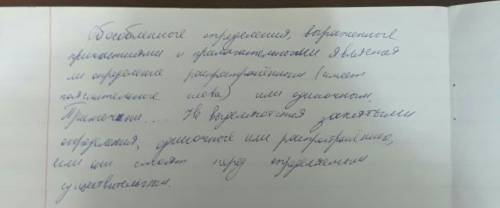 Обособленные определения, выраженные
причастиями и прилагательными является
ли определение распространённым (имеет
пояснительные слова) или одиночным.
Примечание... Не выделяются запятыми
определения, одиночные или распространённые,
если они стоят перед определяемым
существительным.